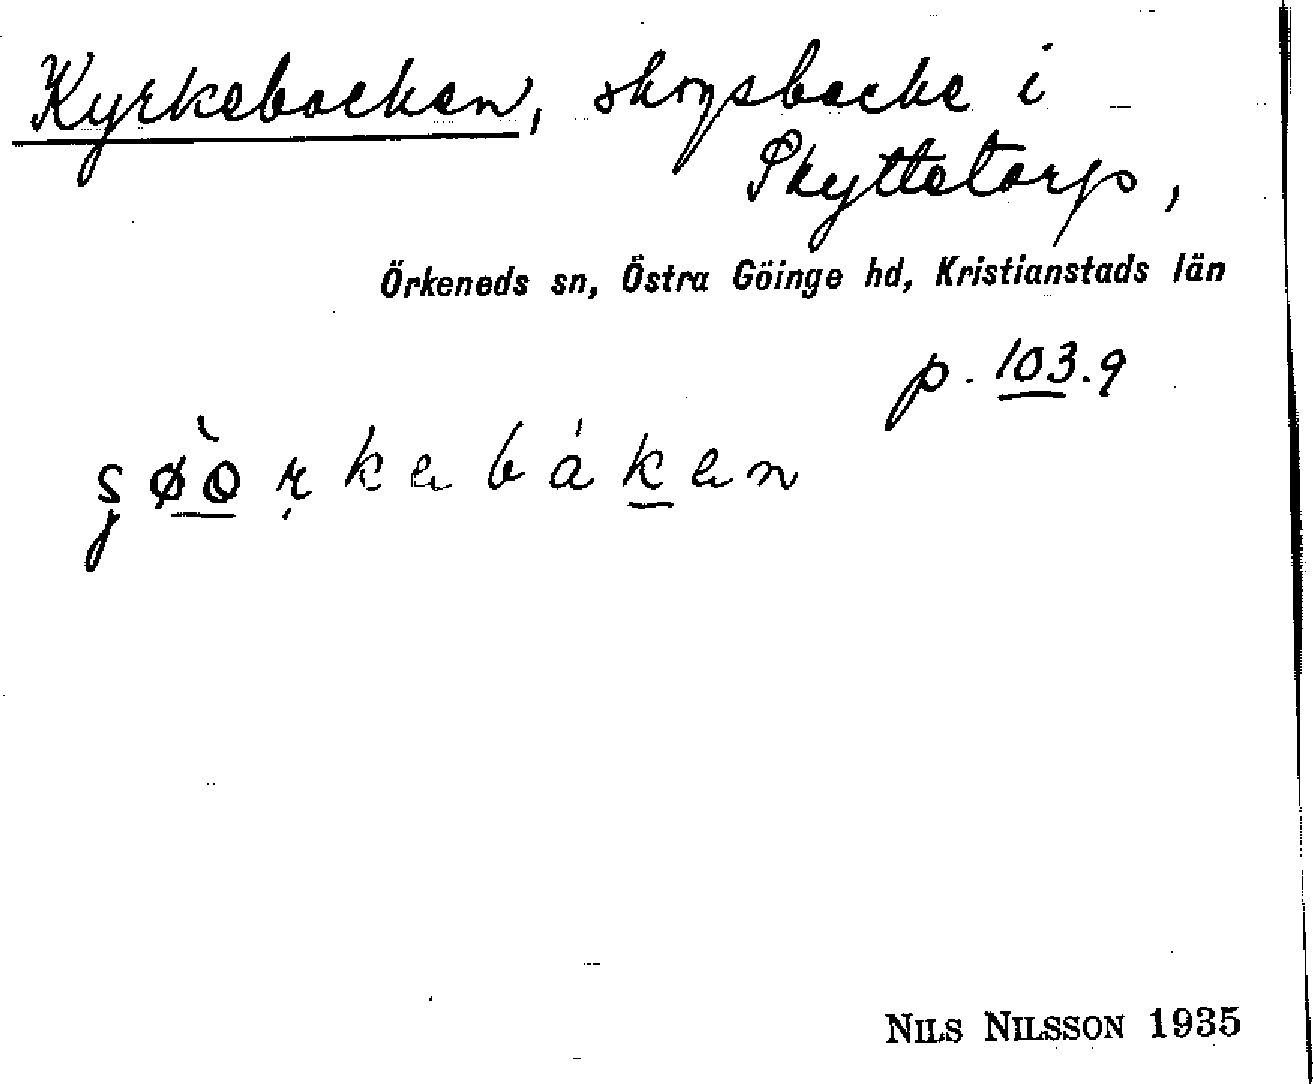 Kyrkebacken, skogsbacke i
Skyttetorp,
Örkeneds sn, Östra Göinge hd, Kristianstads län
p. 103.9
NILS NILSSON 1935